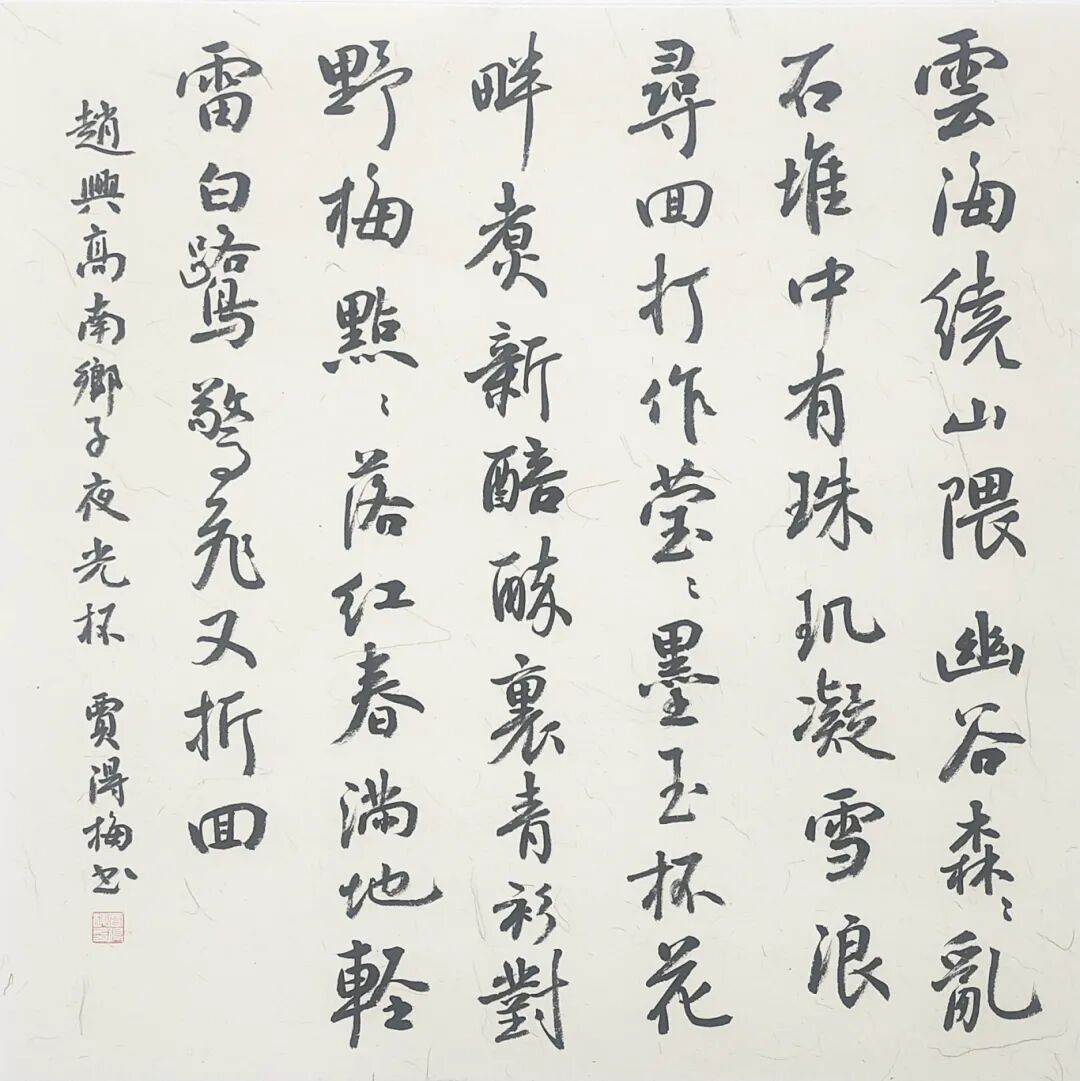 雲海繞山隈幽谷森〻亂
石堆中有珠玑凝雪浪
尋回打作莹〻墨玉杯花
畔煮新醅醉裏青衫對
野梅點〻落红春滿地輕
雷白鷺驚飛又折回
趙興高南鄉子夜光杯 賈得梅书